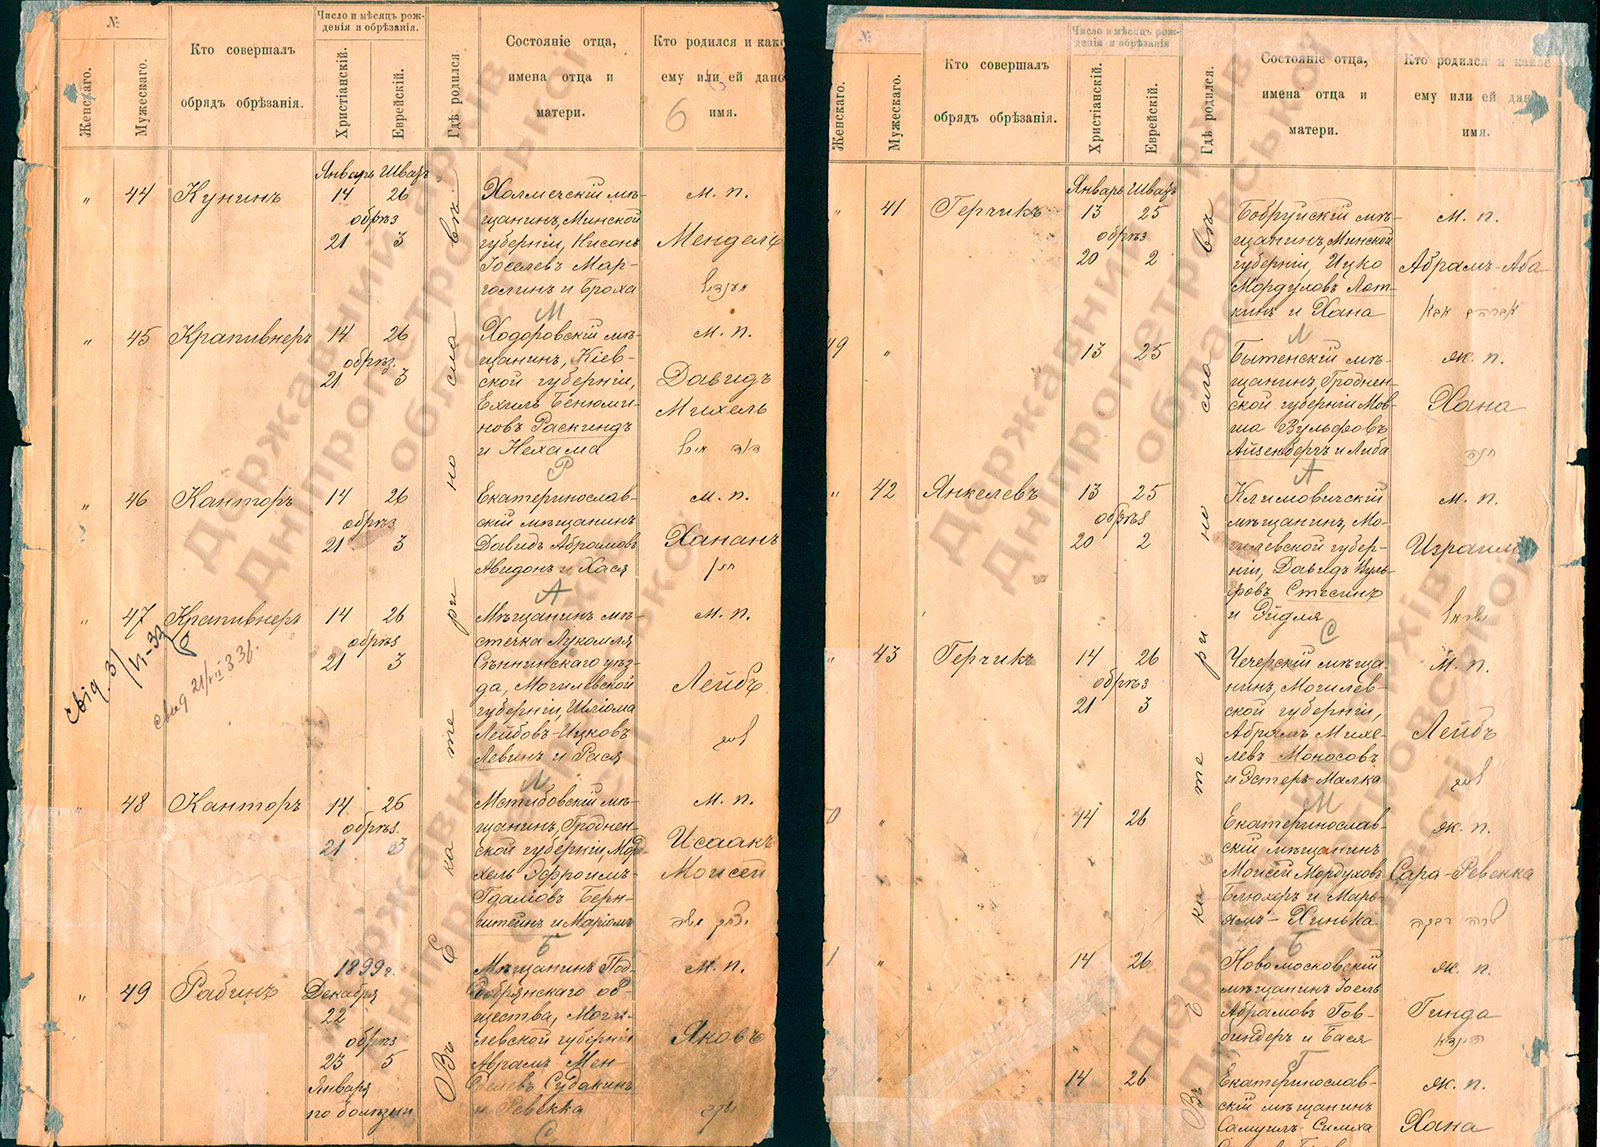 №
Женскаго.
Мужескаго.
Кто совершалъ
обрядъ обрѣзанія.
Число и мѣсяцъ рож-
денія и обрѣзанія.
Христіанскій.
Еврейскій.
Гдѣ родился
Состояніе отца,
имена отца и
матери.
Кто родился и како
ему или ей дано
имя.
6
Январь Шватъ
„ 44 Кунинъ 14 26
обрѣз
21 3
Холмечскій мѣ-
щанинъ, Минской
губерніи, Нисонъ
Іоселевъ Мар-
голинъ и Броха
М
м. п.
Мендель
„ 45 Крапивнеръ 14 26
обрѣз.
21 3
Ходоровскій мѣ-
щанинъ, Кіев-
ской губерніи,
Ехиль Бенюми-
новъ Раскиндъ
и Нехама
Р
м. п.
Давидъ
Михель
„ 46 Канторъ 14 26
обрѣз
21 3
Екатеринослав-
скій мѣщанинъ
Давидъ Абрамовъ
Авидонъ и Хася
А
м. п.
Хананъ
חנן
„ 47 Крапивнеръ 14 26
обрѣз
21 3
Мѣщанинъ мѣ-
стечка Лукомля
Сѣннинскаго уѣз-
да, Могилевской
губерніи, Шлiома
Лейбовъ-Ицковъ
Левинъ и Рася
Л
м. п.
Лейбъ
48 Канторъ 14 26
обрѣз.
21 3
Мстибовскій мѣ-
щанинъ, Гроднен-
ской губерніи, Мор-
хель Эфроимъ-
Гдаліовъ Берн-
штейнъ и Маріомъ
Б
м. п.
Исаакъ
Моисей
יצחק משה
1899 г.
„ 49 Рабинъ Декабря
22
обрѣз
23 5
Января
по болѣзни
Мѣщанинъ Под-
добрянскаго об-
щества, Моги-
левской губерніи
Аврамъ Мен-
делевъ Судакинъ
и Ревекка
С
м. п.
Яковъ
יעקב
Въ Екатеринославѣ
№
Женскаго.
Мужескаго.
Кто совершалъ
обрядъ обрѣзанія.
Число и мѣсяцъ рож-
денія и обрѣзанія
Христіанскій.
Еврейскій.
Гдѣ родился.
Состояніе отца,
имена отца и
матери.
Кто родился и какое
ему или ей дано
имя.
Январь Шватъ
„ 41 Герчикъ 13 25
обрѣз
20 2
Бобруйскій мѣ-
щанинъ, Минской
губерніи, Ицко
Мордуховъ Лот-
кинъ и Хана
Л
м. п.
Абрамъ-Аба
אברהם אבא
9 „ 13 25
Бытенскій мѣ-
щанинъ, Гроднен-
ской губерніи Мов-
ша Вульфовъ
Айзенбергъ и Либа
А
ж. п.
Хана
חנה
„ 42 Янкелевъ 13 25
обрѣз
20 2
Климовичскій
мѣщанинъ, Мо-
гилевской губер-
ніи, Давидъ Вуль-
фовъ Стесинъ
и Эйдля
С
м. п.
Израиль
ישראל
43 Герчикъ 14 26
обрѣз
21 3
Чечерскій мѣща-
нинъ, Могилев-
ской губерніи,
Абрамъ Михе-
левъ Моносовъ
и Эстеръ-Малка
М
м. п.
Лейбъ
0 „ 14 26
Екатеринослав-
скій мѣщанинъ
Моисей Мордуховъ
Блюхеръ и Марь-
ямъ-Хинька
Б
ж. п.
Сара-Ревекка
שרה רבקה
1 „ 14 26
Новомосковскій
мѣщанинъ Іоель
Абрамовъ Гов-
биндеръ и Бася
Г
ж. п.
Гинда
14 26
Екатеринослав-
скій мѣщанинъ
Самуилъ-Симха
ж. п.
Хана
Въ Екатеринославѣ
Державний архів
Дніпропетровської
області